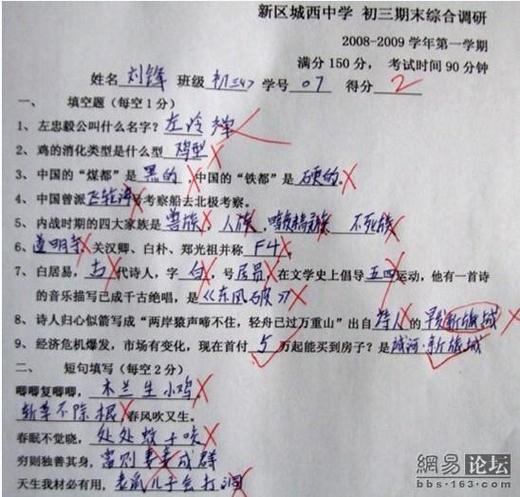 新区城西中学 初三期末综合调研
2008-2009学年第一学期
满分 150 分， 考试时间 90 分钟
姓名 刘锋 班级 初三<4> 学号 07 得分 2
一、 填空题（每空1分）
1、左忠毅公叫什么名字？左冷禅
2、鸡的消化类型是什么型 鸡型
3、中国的“煤都”是 黑的 ,中国的“铁都”是 硬的
4、中国曾派 飞轮海 号考察船去北极考察。
5、内战时期的四大家族是 兽族 、 人族 、 暗夜精灵族 不死族
6、道明寺 关汉卿、白朴、郑光祖并称 F4
7、白居易，古 代诗人，字 白 ，号 居易 ，在文学史上倡导 五四 运动，他有一首诗
的音乐描写已成千古绝唱，是 《东风破》
8、诗人归心似箭写成“两岸猿声啼不住，轻舟已过万重山”出自 诗人 的
9、经济危机爆发，市场有变化，现在首付 5 万起能买到房子？是 城河·新旅城
二、 短句填写（每空2分）
唧唧复唧唧， 木兰生小鸡
斩草不除根 春风吹又生。
春眠不觉晓， 处处蚊子咬
穷则独善其身，富则妻妾成群
天生我材必有用，老鼠儿子会打洞
网易 论坛
bbs.163.com